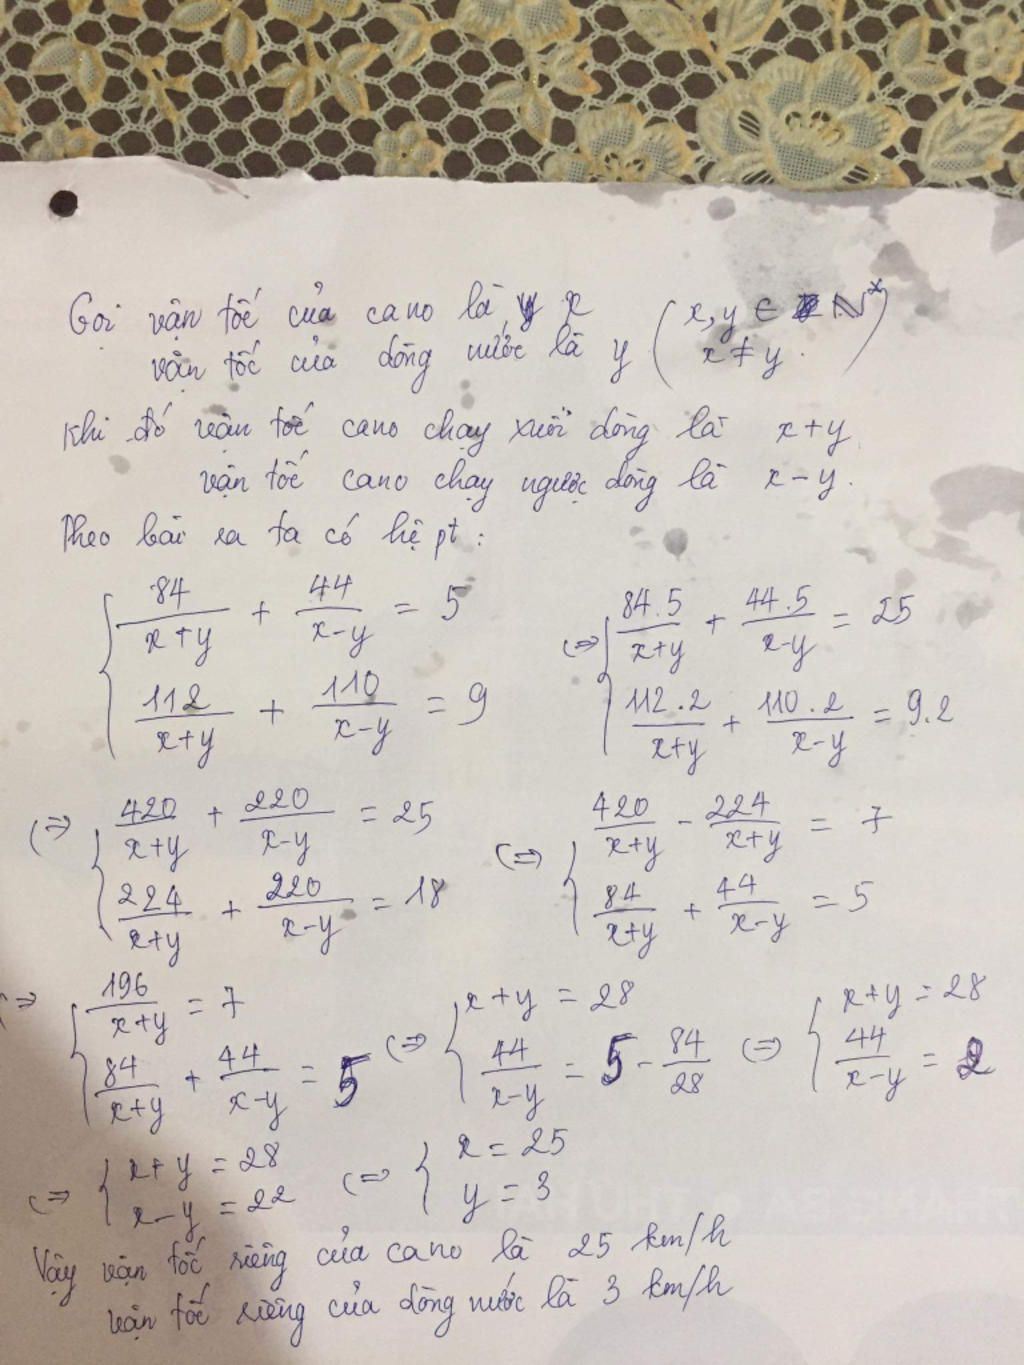 Gọi vận tốc của cano là x (x, y ∈ N*
vận tốc của dòng nước là y x ≠ y.)
Khi đó vận tốc cano chạy xuôi dòng là x+y
vận tốc cano chạy ngược dòng là x-y.
Theo bài ra ta có hệ pt:
{ 84/(x+y) + 44/(x-y) = 5
112/(x+y) + 110/(x-y) = 9
(=> { 84.5/(x+y) + 44.5/(x-y) = 25
112.2/(x+y) + 110.2/(x-y) = 9.2
(=> { 420/(x+y) + 220/(x-y) = 25
224/(x+y) + 220/(x-y) = 18
(=> { 420/(x+y) - 224/(x+y) = 7
84/(x+y) + 44/(x-y) = 5
(=> { 196/(x+y) = 7
84/(x+y) + 44/(x-y) = 5
(=> { x+y = 28
44/(x-y) = 5 - 84/28
(=> { x+y = 28
44/(x-y) = 2
(=> { x+y = 28
x-y = 22
(=> { x = 25
y = 3
Vậy vận tốc riêng của cano là 25 km/h
vận tốc riêng của dòng nước là 3 km/h